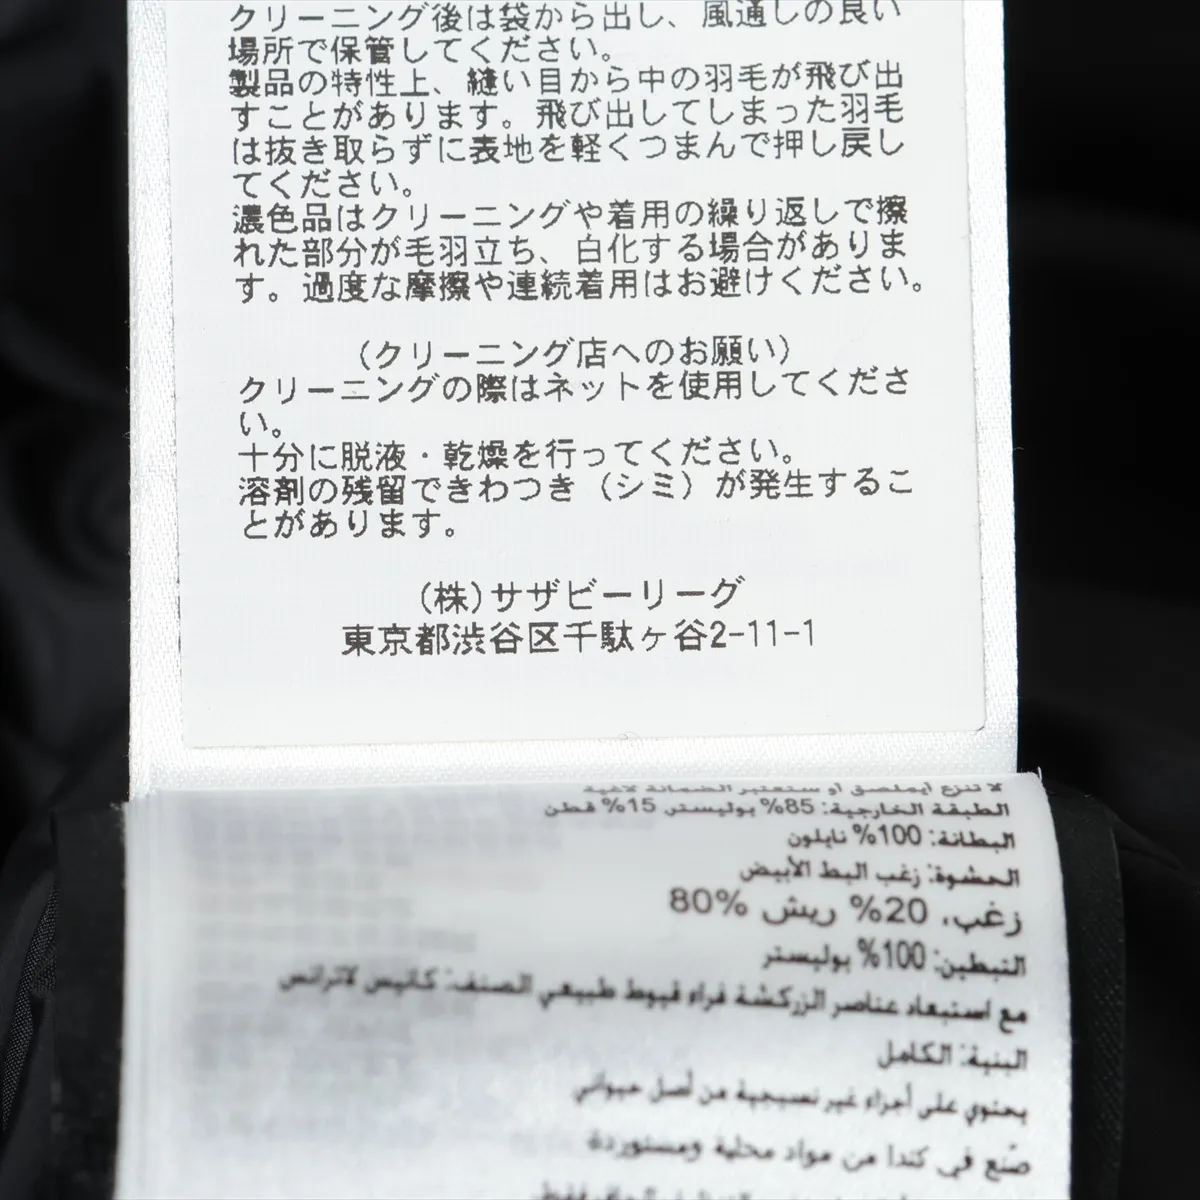 クリーニング後は袋から出し、風通しの良い
場所で保管してください。
製品の特性上、縫い目から中の羽毛が飛び出
すことがあります。飛び出してしまった羽毛
は抜き取らずに表地を軽くつまんで押し戻し
てください。
濃色品はクリーニングや着用の繰り返しで擦
れた部分が毛羽立ち、白化する場合がありま
す。過度な摩擦や連続着用はお避けください。
(クリーニング店へのお願い)
クリーニングの際はネットを使用してくださ
い。
十分に脱液・乾燥を行ってください。
溶剤の残留できわつき（シミ）が発生するこ
とがあります。
(株)サザビーリーグ
東京都渋谷区千駄ヶ谷2-11-1
لا تنزع أيملصق او ستعتبر الضمانة لاغية
الطبقة الخارجية: 85% بوليستر 15% قطن
البطانة: 100% نايلون
الحشوة: زغب البط الأبيض
زغب، 20% ريش 80%
التبطين: 100% بوليستر
مع استبعاد عناصر الزركشة فراء قيوط طبيعي الصنف: كانيس لاترانس
البنية: الكامل
يحتوي على أجزاء غير نسيجية من أصل حيواني
صنع في كندا من مواد محلية ومستوردة